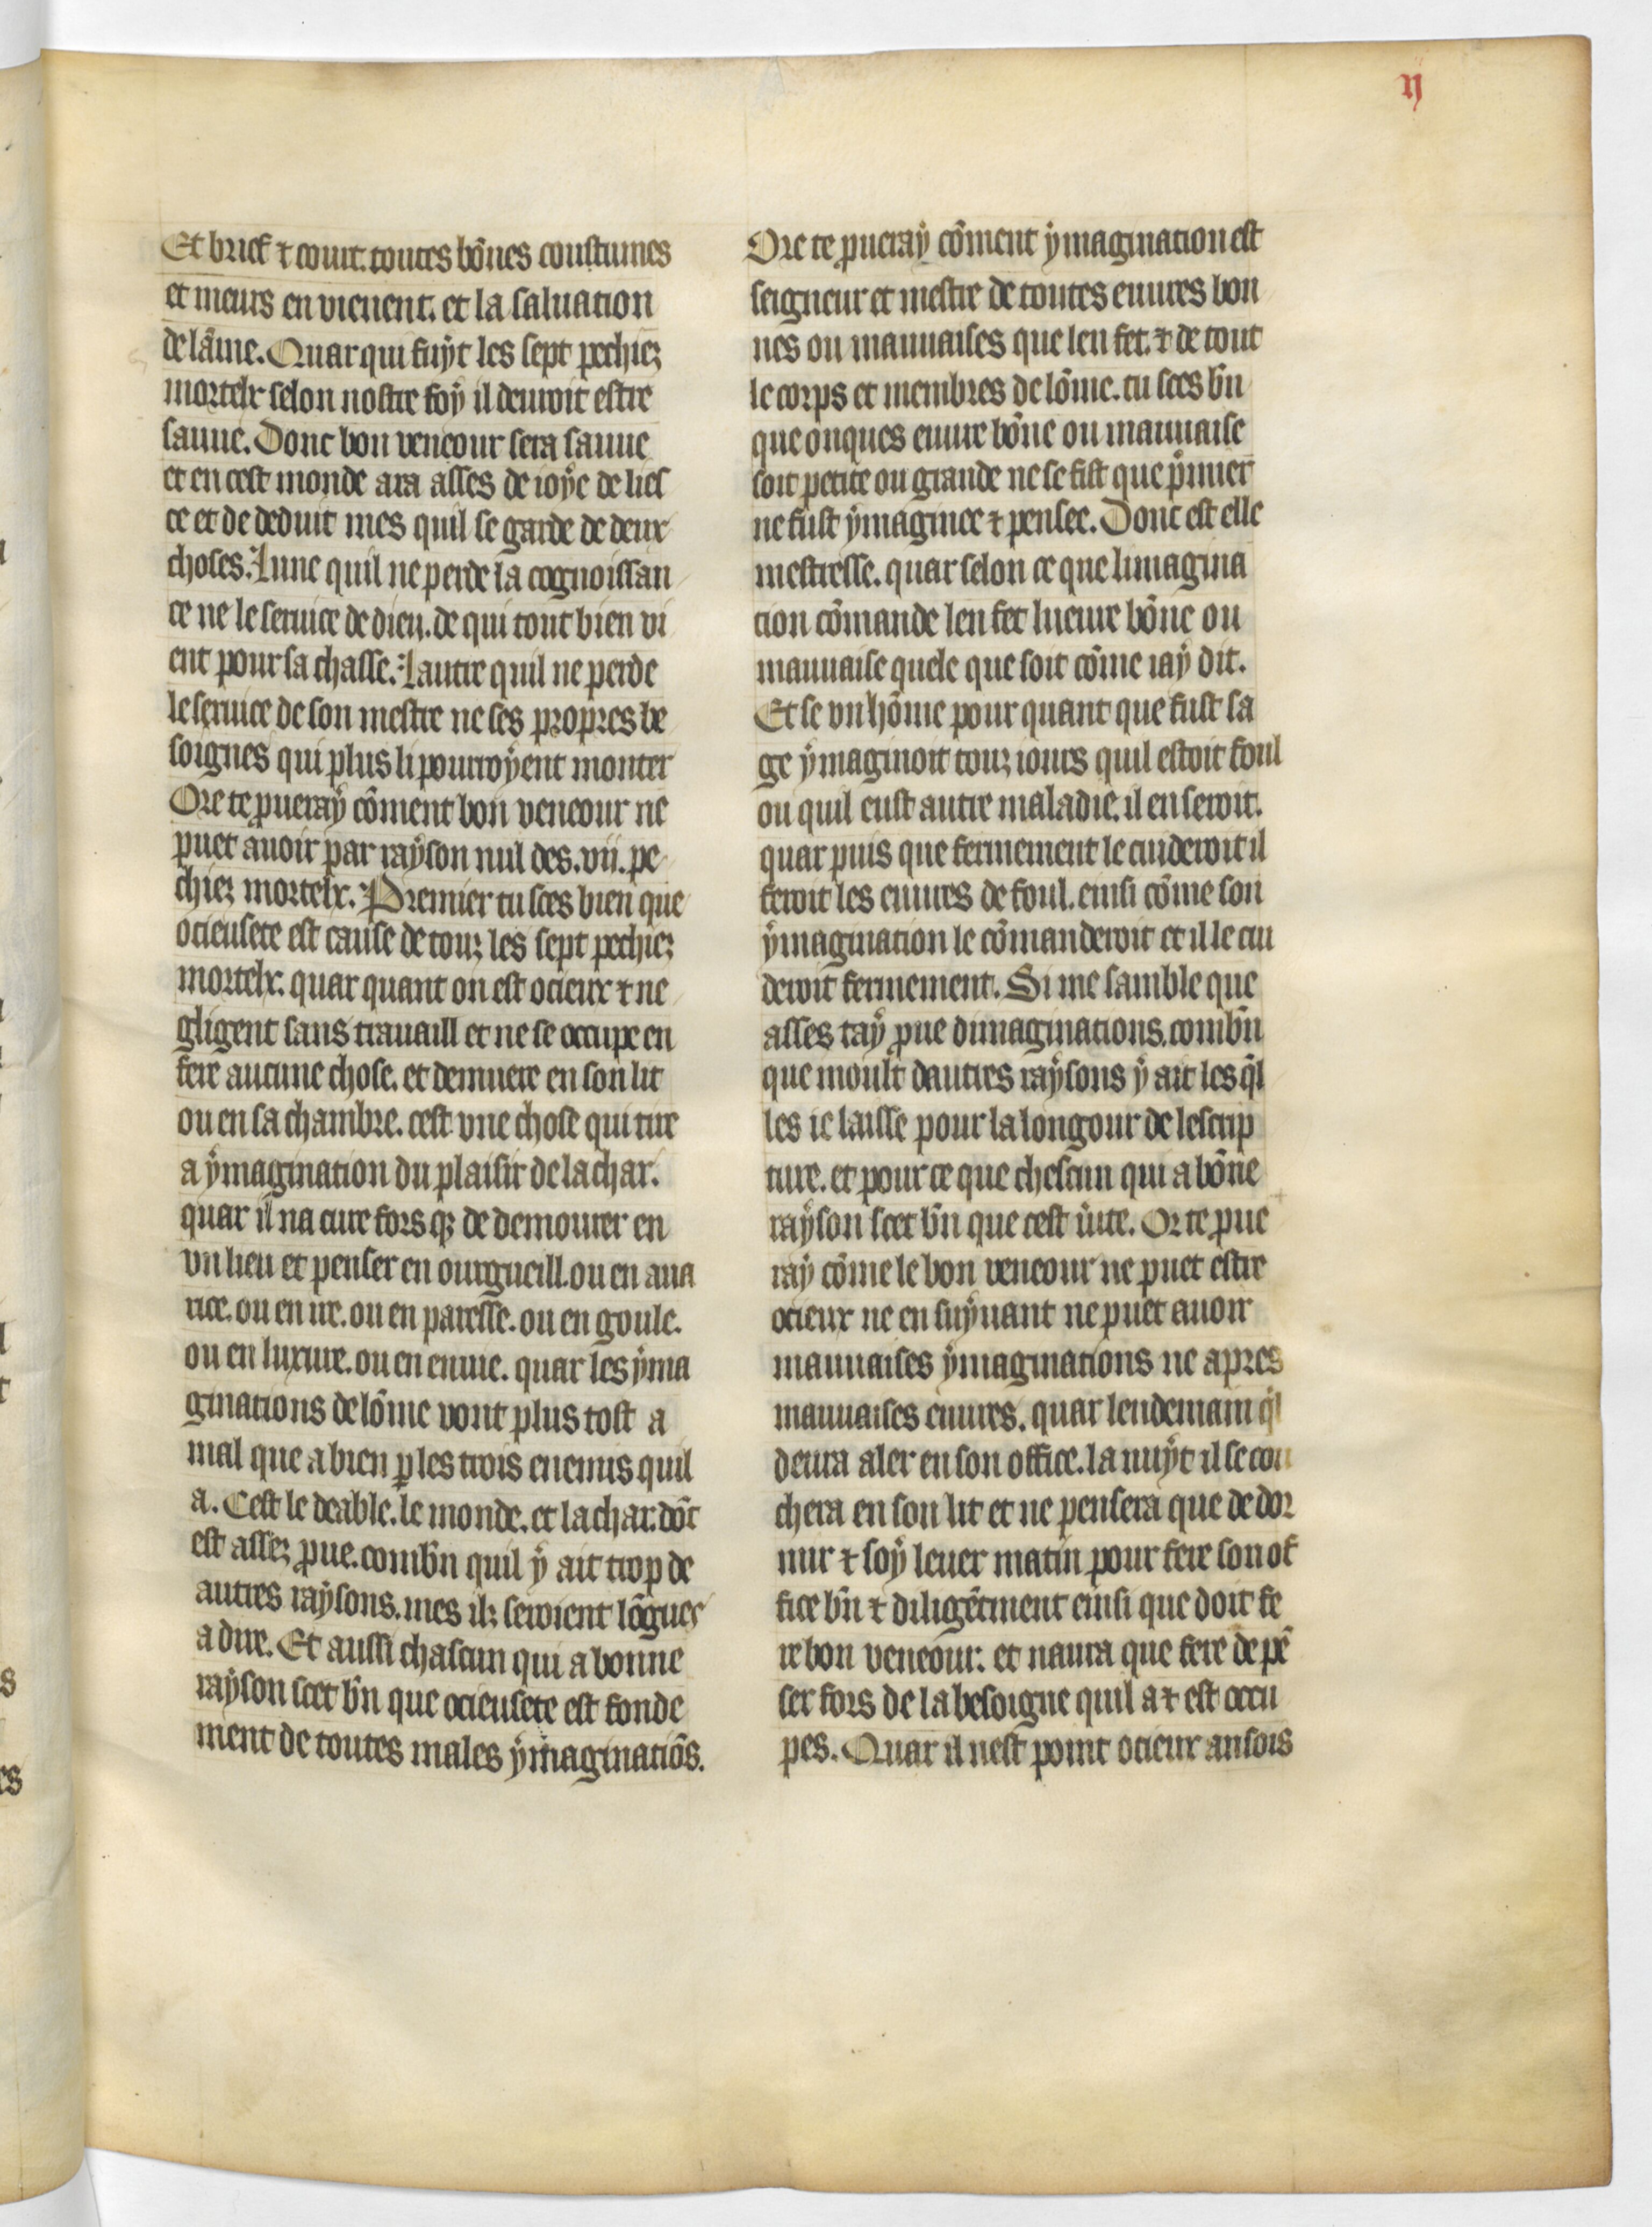 ij
Et brief ⁊ court. toutes bõnes coustumes
et meurs en vienent. et la saluation
de lãme. Quar qui fuẏt les sept pechiez
mortelx selon nostre foẏ il deuroit estre
sauue. Donc bon veneour sera sauue
et en cest monde ara asses de ioẏe de lies
ce et de deduit mes quil se garde de deux
choses. Lune quil ne perde la cognoissan
ce ne le seruice de dieu. de qui tout bien vi
ent pour sa chasse. Lautre quil ne perde
le seruice de son mestre ne ses propres be
soignes qui plus li pourroẏent monter
Ore te ꝓueraẏ cõment bon veneour ne
puet auoir par raẏson nul des .vii. pe
chiez mortelx. Premier tu sces bien que
ocieusete est cause de touz les sept pechiez
mortelx. quar quant on est ocieux ⁊ ne
gligent sans trauaill et ne se occupe en
fere aucune chose. et demuere en son lit
ou en sa chambre. cest vne chose qui tire
a ẏmagination du plaisir de la char.
quar il na cure fors qꝫ de demourer en
vn lieu et penser en ourgueill. ou en aua
rice. ou en ire. ou en paresse. ou en goule.
ou en luxure. ou en enuie. quar les ẏma
ginations de lõme vont plus tost a
mal que a bien ꝑ les trois enemis quil
a. Cest le deable. le monde. et la char. dõt
est assez ꝓue. combñ quil ẏ ait trop de
autres raẏsons. mes ilz seroient lõgues
a dire. Et aussi chascun qui a bonne
raẏson scet bñ que ocieusete est fonde
ment de toutes males ẏmaginatiõs.
Ore te ꝓueraẏ cõment ẏmagination est
seigneur et mestre de toutes euures bon
nes ou mauuaises que len fet. ⁊ de tout
le corps et membres de lõme. tu sces bñ
que onques euure bõne ou mauuaise
soit petite ou grande ne se fist que pͥmier
ne fust ẏmaginee ⁊ pensee. Donc est elle
mestresse. quar selon ce que limagina
tion cõmande len fet lueure bõne ou
mauuaise quele que soit cõme iaẏ dit.
Et se vn hõme pour quant que fust sa
ge ẏmaginoit touz iours quil estoit foul
ou quil eust autre maladie. il en seroit.
quar puis que fermement le cuideroit il
feroit les euures de foul. einsi cõme son
ẏmagination le cõmanderoit et il le cui
deroit fermement. Si me samble que
asses taẏ ꝓue dimaginations. combñ
que moult dautres raẏsons ẏ ait les q̃l
les ie laisse pour la longour de lescrip
ture. et pour ce que chescun qui a bõne
raẏson scet bñ que cest ũite. Or te ꝓue
raẏ cõme le bon veneour ne puet estre
ocieux ne en suẏuant ne puet auoir
mauuaises ẏmaginations ne apres
mauuaises euures. quar lendemain qͥl
deura aler en son office. la nuẏt il se cou
chera en son lit et ne pensera que de dor
mir ⁊ soẏ leuer matin pour fere son of
fice bñ ⁊ diligẽtment einsi que doit fe
re bon veneour. et naura que fere de pẽ
ser fors de la besoigne quil a ⁊ est occu
pes. Quar il nest point ocieux ansois